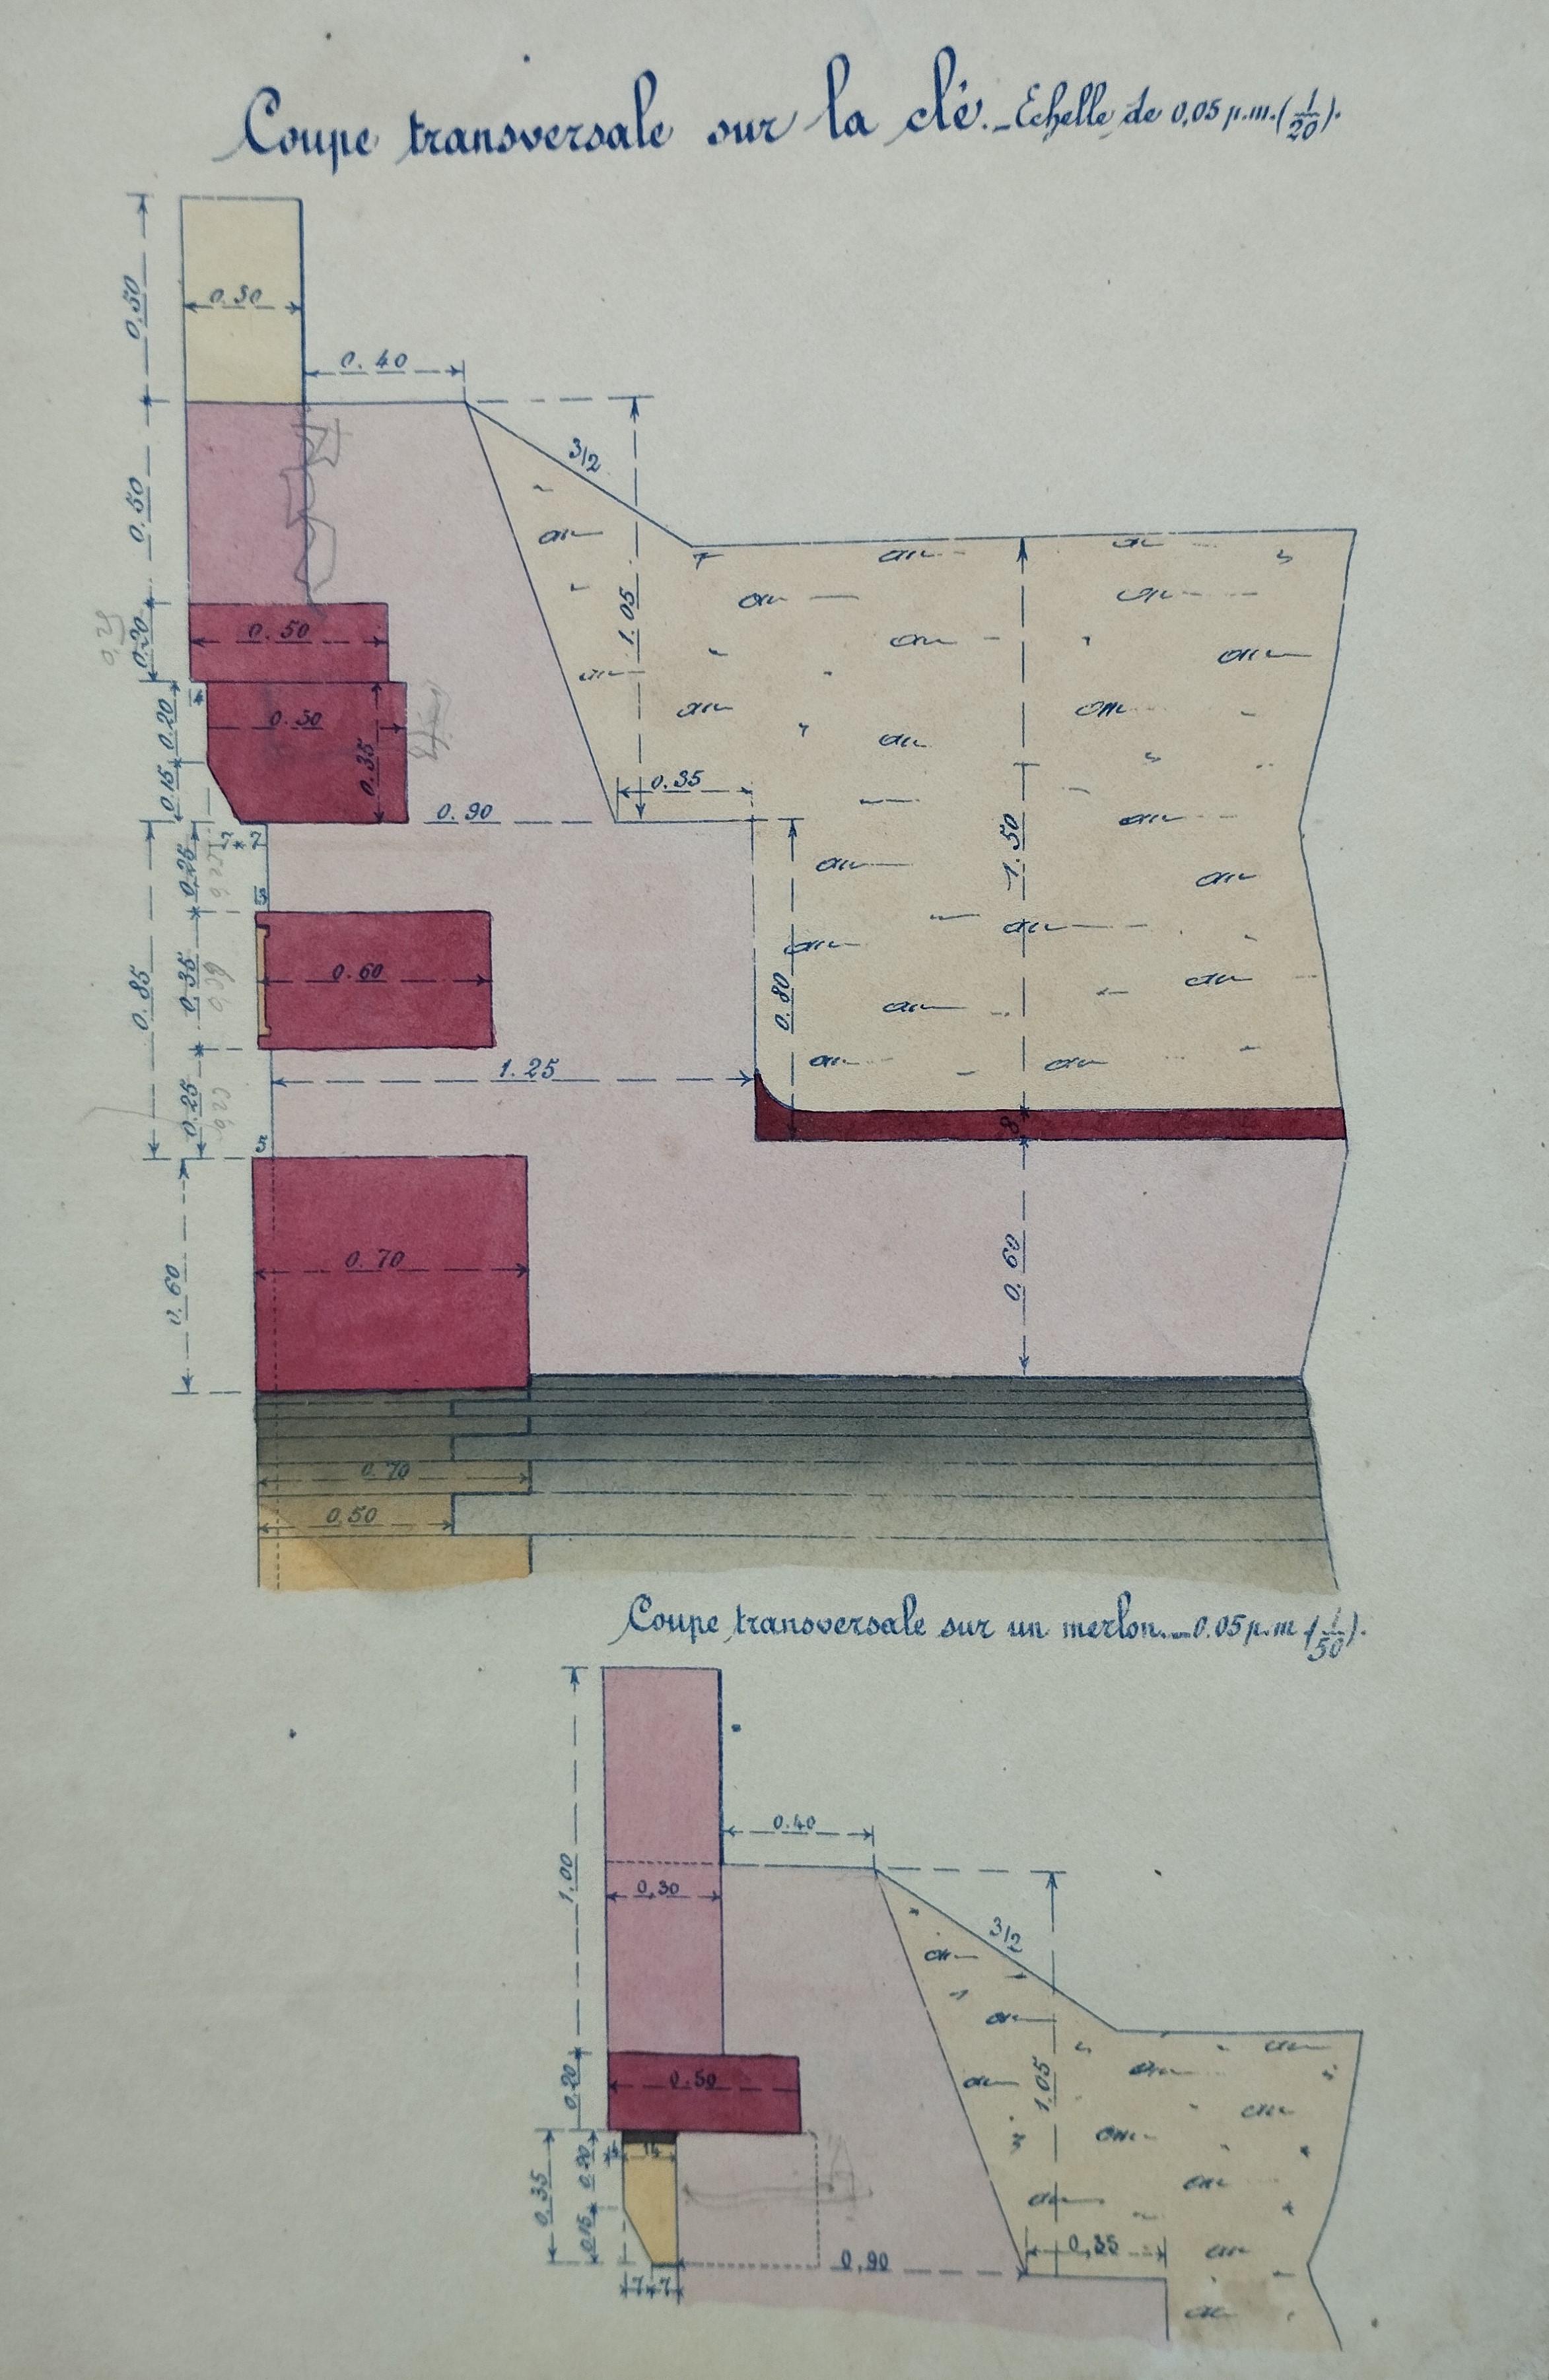 Coupe transversale sur la clé. _ Echelle de 0,05 p.m. (1/20).
0,50
0.30
0.40
3/2
0.50
1.05
0.20
0.50
4
0.20
0.50
0.35
0.15
0.35
0.90
7 7
0.25
5
1.50
0.85
0.35
0.60
0.80
1.25
0.25
8
5
0.60
0.70
0.60
0.70
0.50
Coupe transversale sur un merlon. _ 0.05 p.m (1/50).
1.00
0.40
0,30
3/2
0.20
0.50
1.05
4
14
0.35
0.20
0.15
0,35
0,90
7 7